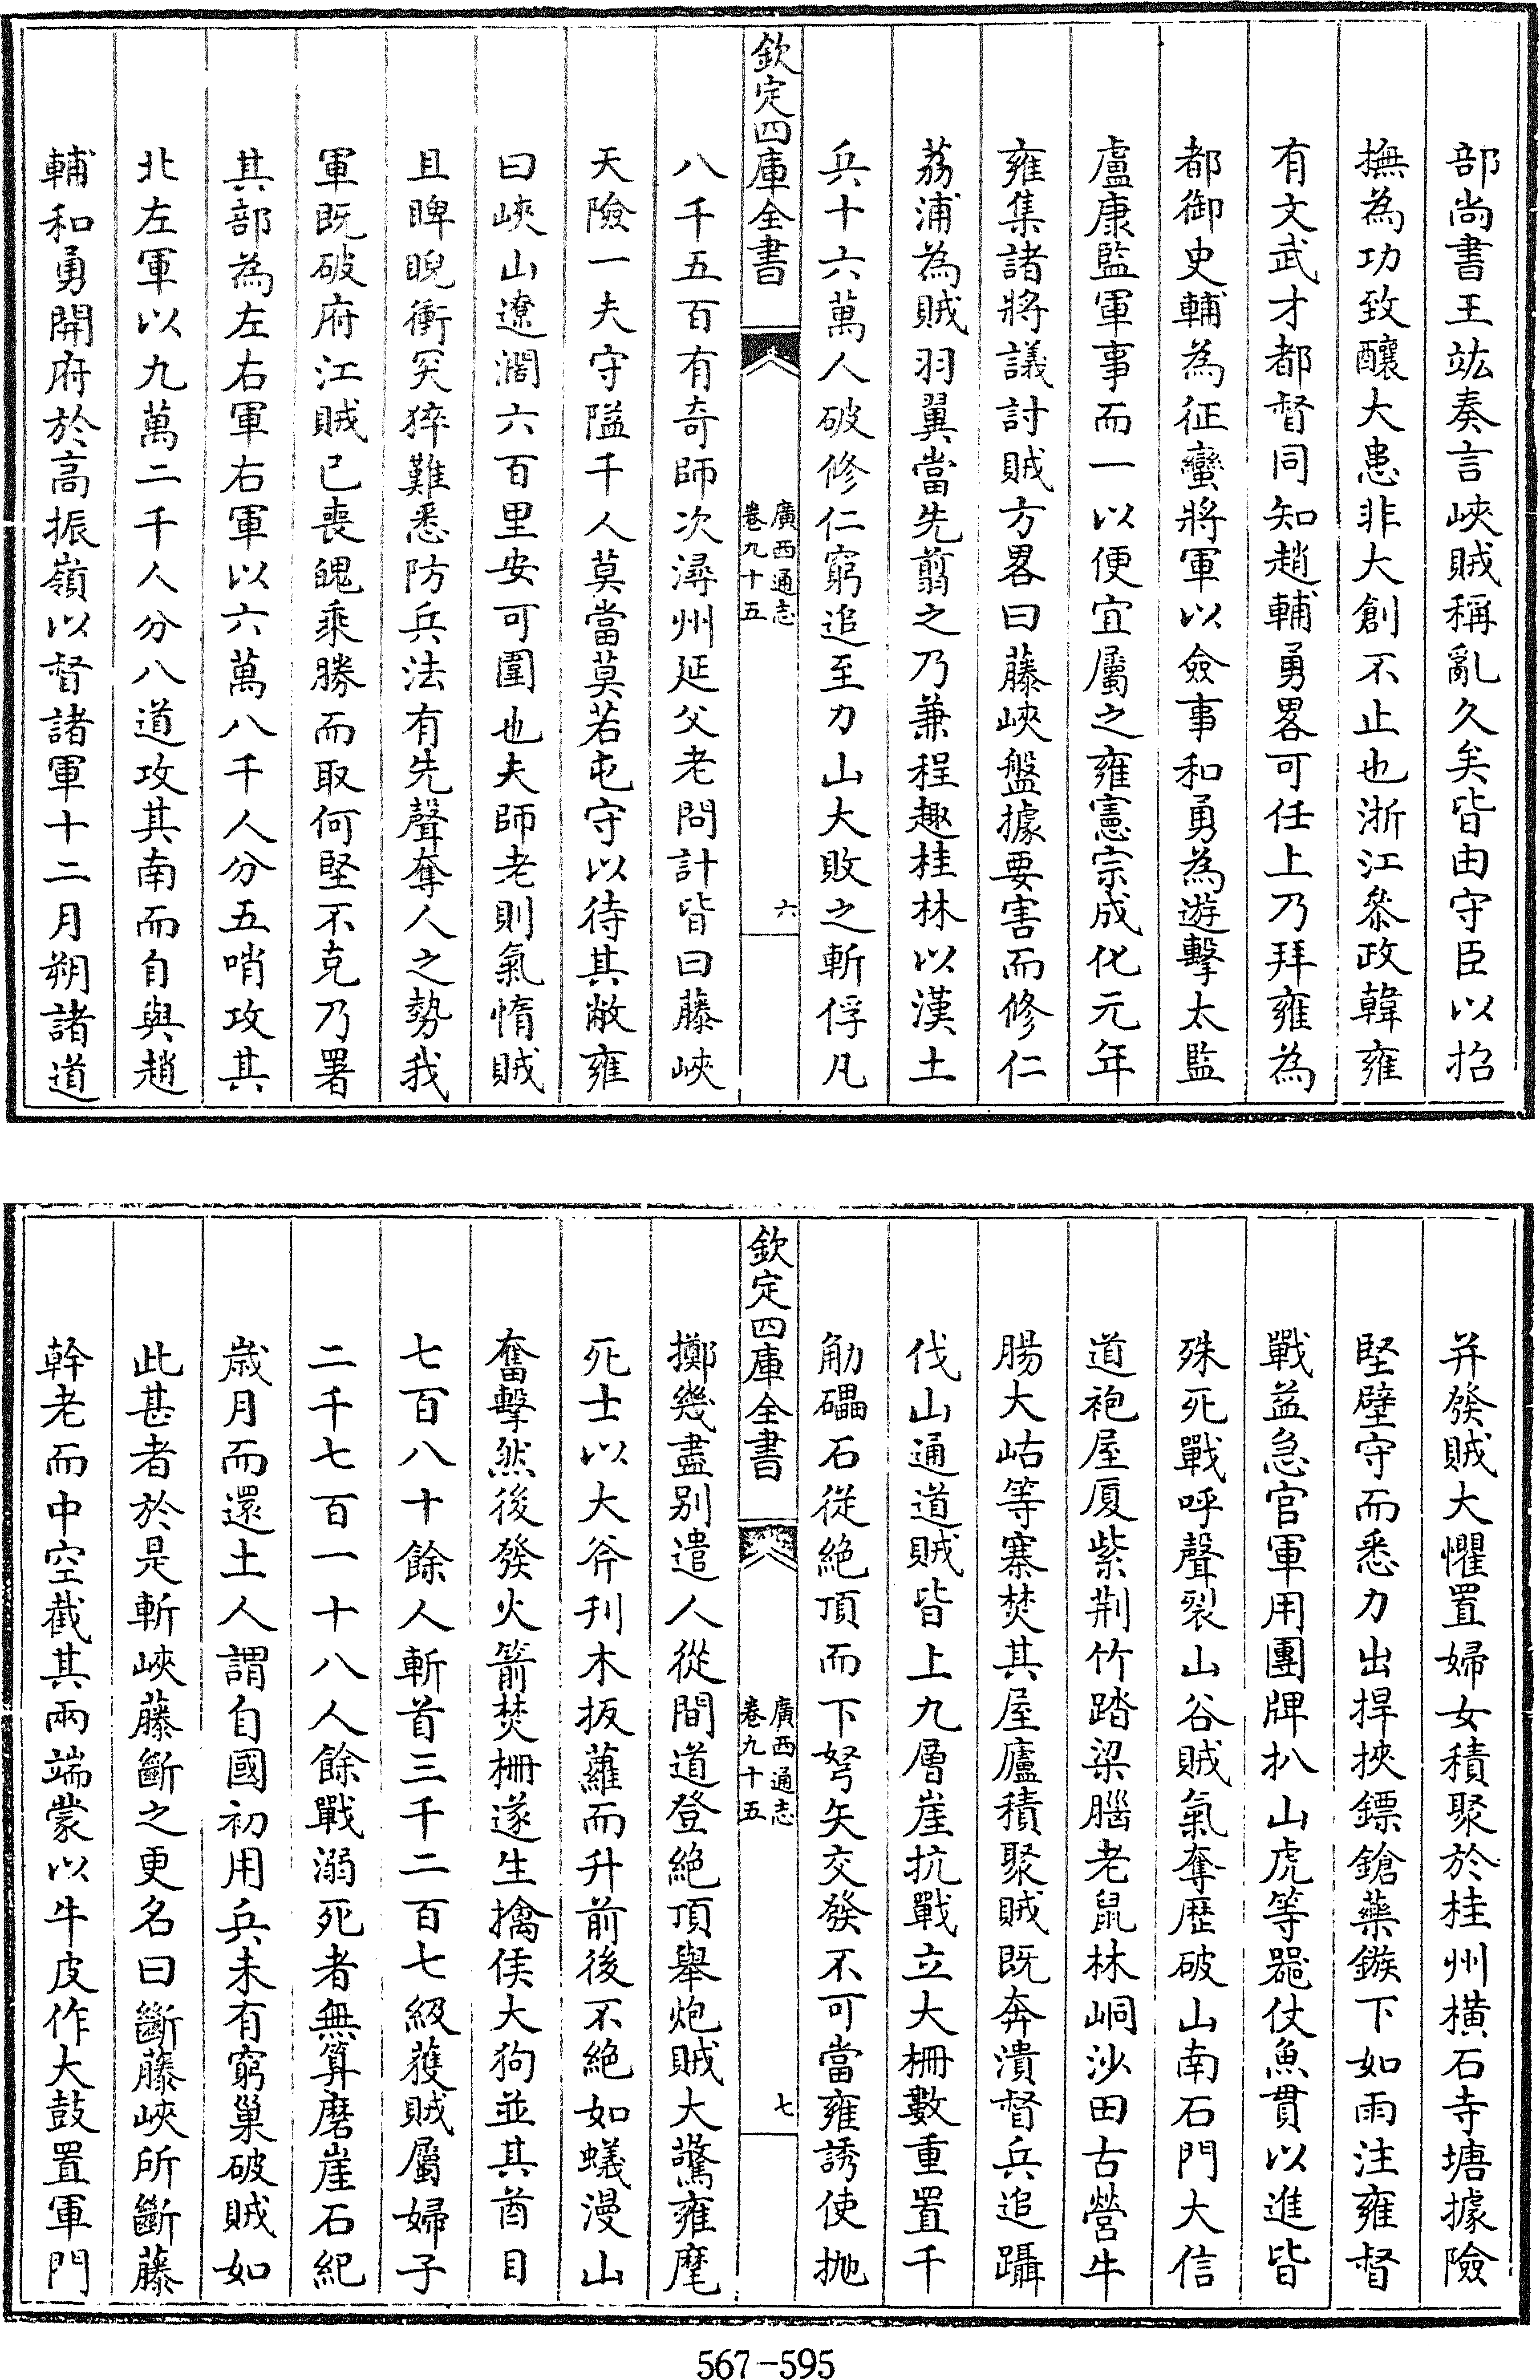 部尚書王竑奏言峽賊稱亂久矣皆由守臣以招
撫為功致釀大患非大創不止也浙江叅政韓雍
有文武才都督同知趙輔勇畧可任上乃拜雍為
都御史輔為征蠻將軍以僉事和勇為遊擊太監
盧康監軍事而一以便宜屬之雍憲宗成化元年
雍集諸將議討賊方畧曰藤峽盤據要害而修仁
荔浦為賊羽翼當先翦之乃兼程趣桂林以漢土
兵十六萬人破修仁窮追至力山大敗之斬俘凡
欽定四庫全書
廣西通志
卷九十五
六
八千五百有奇師次潯州延父老問計皆曰藤峽
天險一夫守隘千人莫當莫若屯守以待其敝雍
曰峽山遼濶六百里安可圍也夫師老則氣惰賊
且睥睨衝突猝難悉防兵法有先聲奪人之勢我
軍既破府江賊已喪魄乘勝而取何堅不克乃署
其部為左右軍右軍以六萬八千人分五哨攻其
北左軍以九萬二千人分八道攻其南而自與趙
輔和勇開府於高振嶺以督諸軍十二月朔諸道
并發賊大懼置婦女積聚於桂州橫石寺塘據險
堅壁守而悉力出捍挾鏢鎗藥鏃下如雨注雍督
戰益急官軍用團牌扒山虎等器仗魚貫以進皆
殊死戰呼聲裂山谷賊氣奪歷破山南石門大信
道袍屋厦紫荆竹踏梁腦老鼠林峒沙田古營牛
腸大岵等寨焚其屋廬積聚賊既奔潰督兵追躡
伐山通道賊皆上九層崖抗戰立大柵數重置千
觔礧石從絶頂而下弩矢交發不可當雍誘使抛
欽定四庫全書
廣西通志
卷九十五
七
擲幾盡别遣人從間道登絶頂舉炮賊大驚雍麾
死士以大斧刋木扳蘿而升前後不絶如蟻漫山
奮擊然後發火箭焚柵遂生擒侯大狗並其酋目
七百八十餘人斬首三千二百七級獲賊屬婦子
二千七百一十八人餘戰溺死者無算磨崖石紀
歲月而還土人謂自國初用兵未有窮巢破賊如
此甚者於是斬峽藤斷之更名曰斷藤峽所斷藤
幹老而中空截其兩端蒙以牛皮作大鼓置軍門
567-595